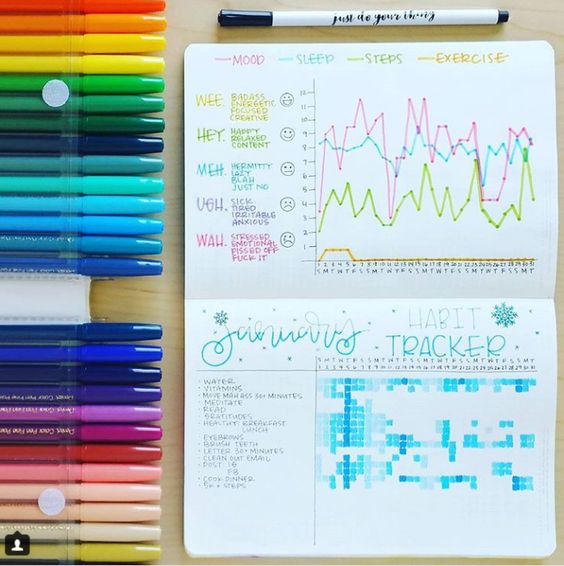 just do your thing
MOOD SLEEP STEPS EXERCISE
WEE. BADASS
ENERGETIC
FOCUSED
CREATIVE
HEY. HAPPY
RELAXED
CONTENT
MEH. HERMITTY
LAZY
BLAH
JUST NO
UGH. SICK
TIRED
IRRITABLE
ANXIOUS
WAH. STRESSED
EMOTIONAL
PISSED OFF
FUCK IT
12
11
10
9
8
7
6
5
4
3
2
1
1 2 3 4 5 6 7 8 9 10 11 12 13 14 15 16 17 18 19 20 21 22 23 24 25 26 27 28 29 30 31
S M T W T F S S M T W T F S S M T W T F S S M T W T F S S M T
January HABIT
TRACKER
S M T W T F S S M T W T F S S M T W T F S S M T W T F S S M T
1 2 3 4 5 6 7 8 9 10 11 12 13 14 15 16 17 18 19 20 21 22 23 24 25 26 27 28 29 30 31
· WATER
· VITAMINS
· MOVE MAH ASS 30+ MINUTES
· MEDITATE
· READ
· GRATITUDES
· HEALTHY: BREAKFAST
LUNCH
· EYEBROWS
· BRUSH TEETH
· LETTER 30+ MINUTES
· CLEAN OUT EMAIL
· POST: IG
FB
· COOK DINNER
· 5K+ STEPS